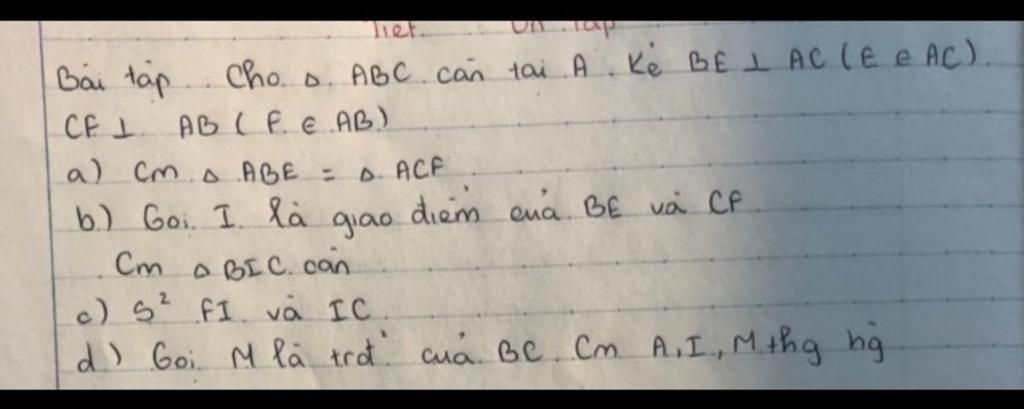 Tiết Ôn tập
Bài tập. Cho Δ ABC cân tại A. Kẻ BE ⊥ AC (E ∈ AC)
CF ⊥ AB (F ∈ AB)
a) Cm Δ ABE = Δ ACF
b) Gọi I là giao điểm của BE và CF
Cm Δ BIC cân
c) S² FI và IC
d) Gọi M là trđ' của BC. Cm A, I, M thg hg